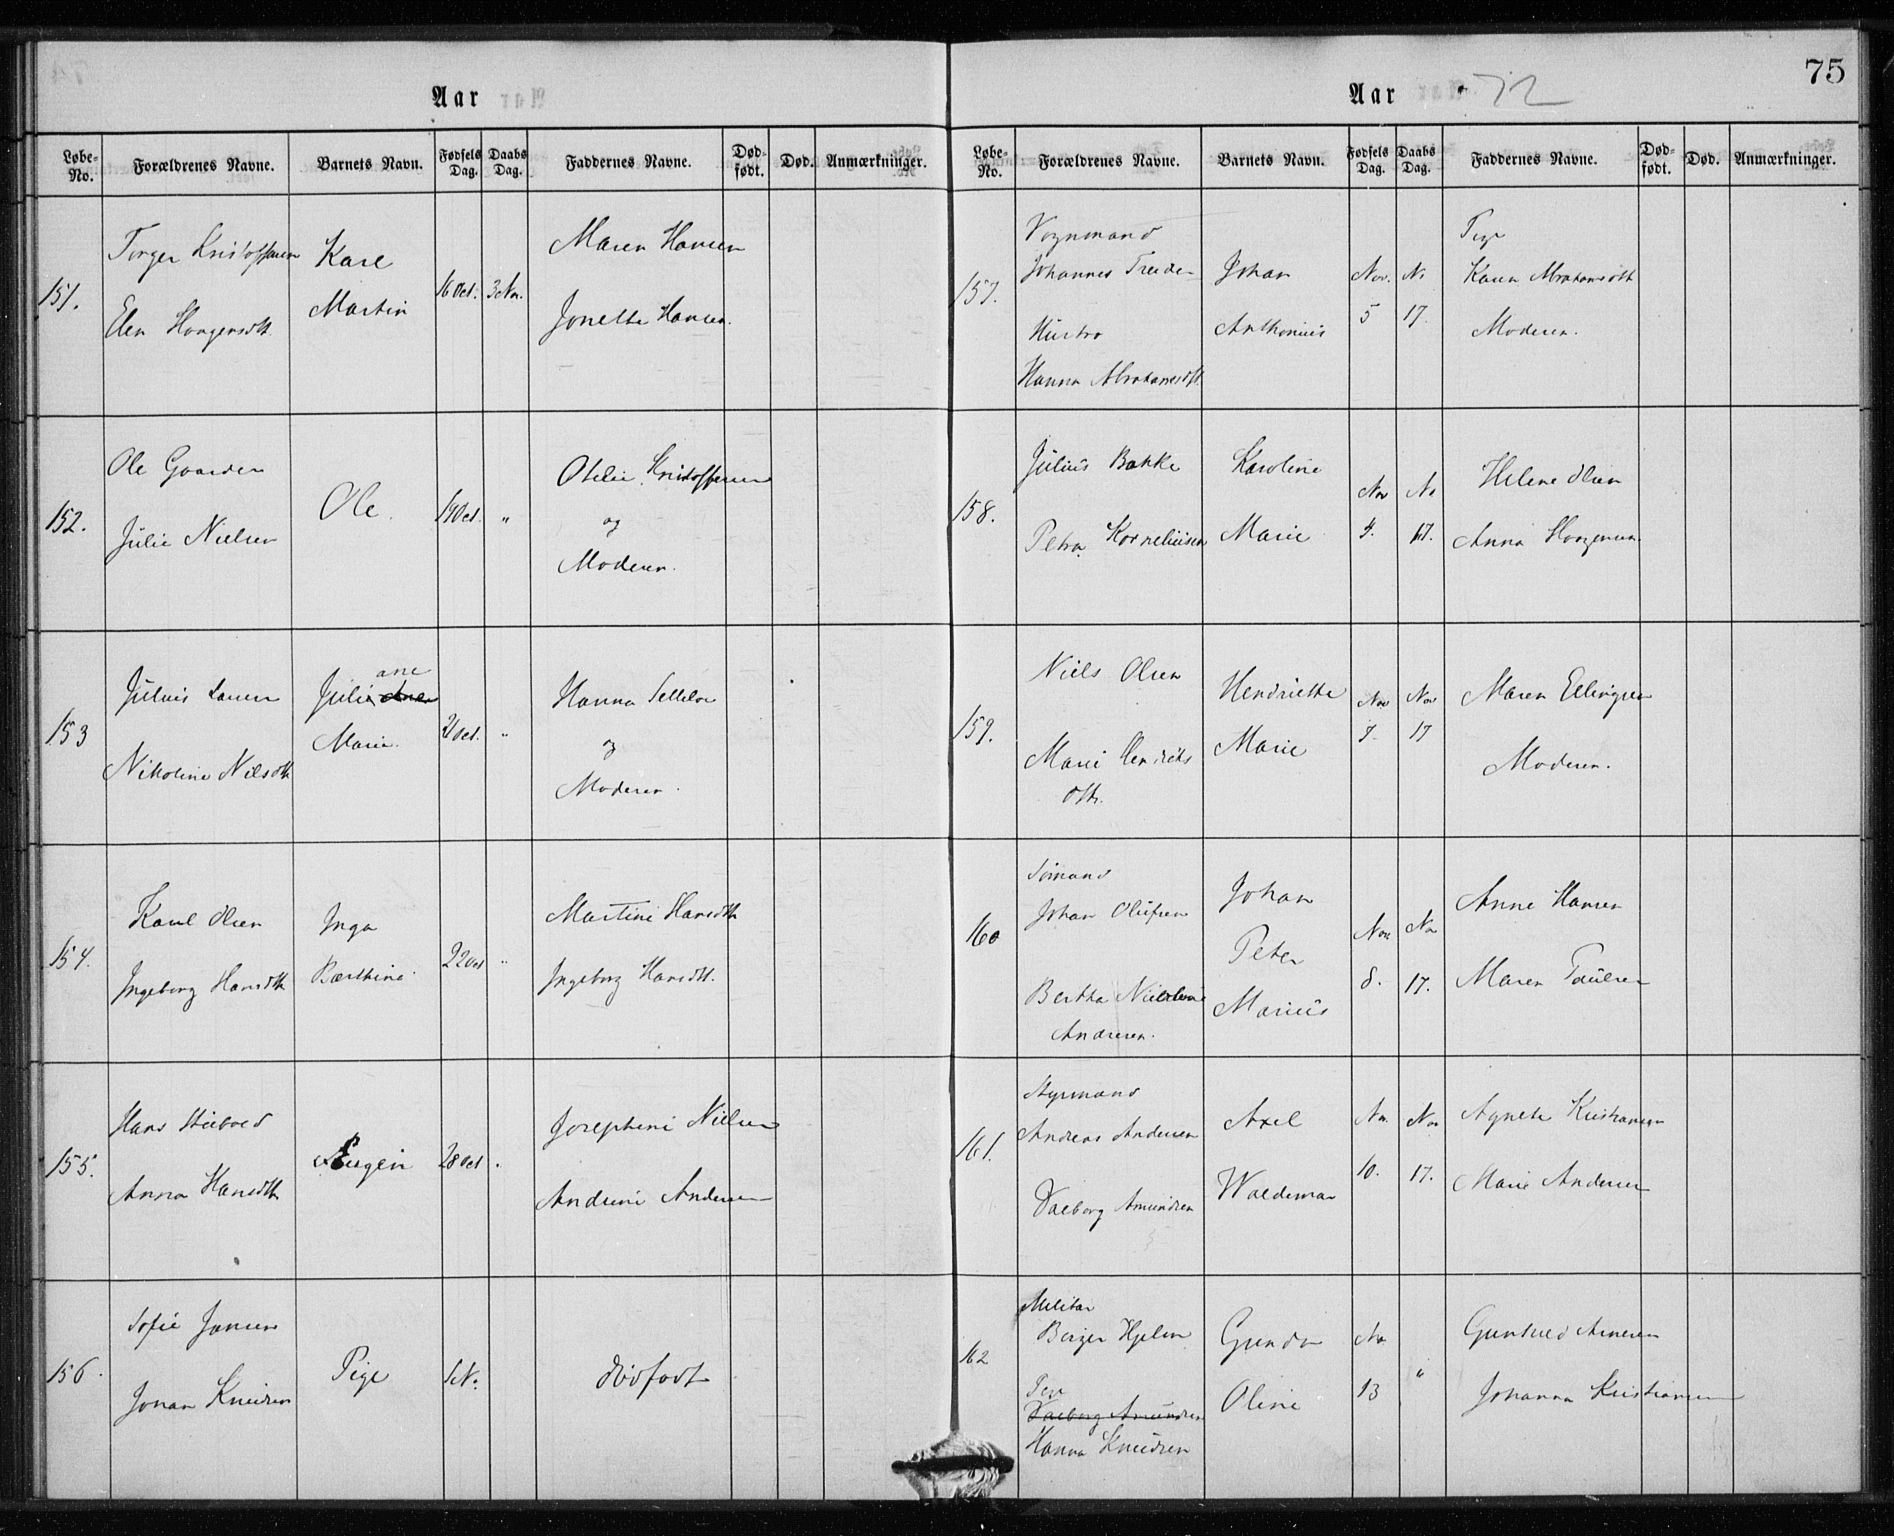 75
Aar
Løbe-No. Forældrenes Navne. Barnets Navn. Fødsels Dag. Daabs Dag. Faddernes Navne. Død-født. Død. Anmærkninger.
151. Torger Kristoffersen
Elen Haagensdtt.
Karl
Martin
16 Oct. 3 Nov.
Maren Hansen
Jonette Hansen.
152. Ole Gaarder
Julie Nielsen
Ole.
19 Oct. "
Otilie Kristoffersen
og
Moderen.
153 Julius Larsen
Nikoline Nilsdtt
Juliane
Marie.
21 Oct. "
Hanna
og
Moderen.
154. Karl Olsen
Ingeborg Hansdtt
Inga
Bærthine.
22 Oct "
Martine Hansdtt
Ingeborg Hansdtt.
155. Hans
Anna Hansdtt
Eugen
28 Oct "
Josephine Nielsen
Andrine Andersen
156. Sofie Jansen
Johan Knudsen
Pige
1 N.
dødfødt
Aar 72
Løbe-No. Forældrenes Navne. Barnets Navn. Fødsels Dag. Daabs Dag. Faddernes Navne. Død-født. Død. Anmærkninger.
157. Vognmand
Johannes
Hustro
Hanna Abrahamsdtt.
Johan
Anthonius
Nov. 5
No 17.
Pige
Karen Abrahamsdtt
Moderen.
158. Julius Bakke
Petra Korneliusen
Karoline
Marie
Nov
No 17.
Helene Olsen
Anna Haagensen
159. Niels Olsen
Marie Hendriks
dtt.
Hendrikke
Marie
Nov 7
Nov 17
Maren Ellingsen
Moderen.
160 Sømand
Johan Olufsen
Bertha Nicoline
Andresen.
Johan
Peter
Marius
Nov 8.
No 17.
Anne Hansen
Maren Paulsen
161. Styrmand
Andreas Andersen
Valborg Amundsen
Axel
Waldemar
No. 10.
Nov 17.
Agnete Kristiansen
Marie Andersen
162 Militær
Birger Hjelm
Pige
Valborg Amundsen
Hanna Knudsen
Gunda
Oline
No 13
"
Gunhild Arnesen
Johanna Kristiansen